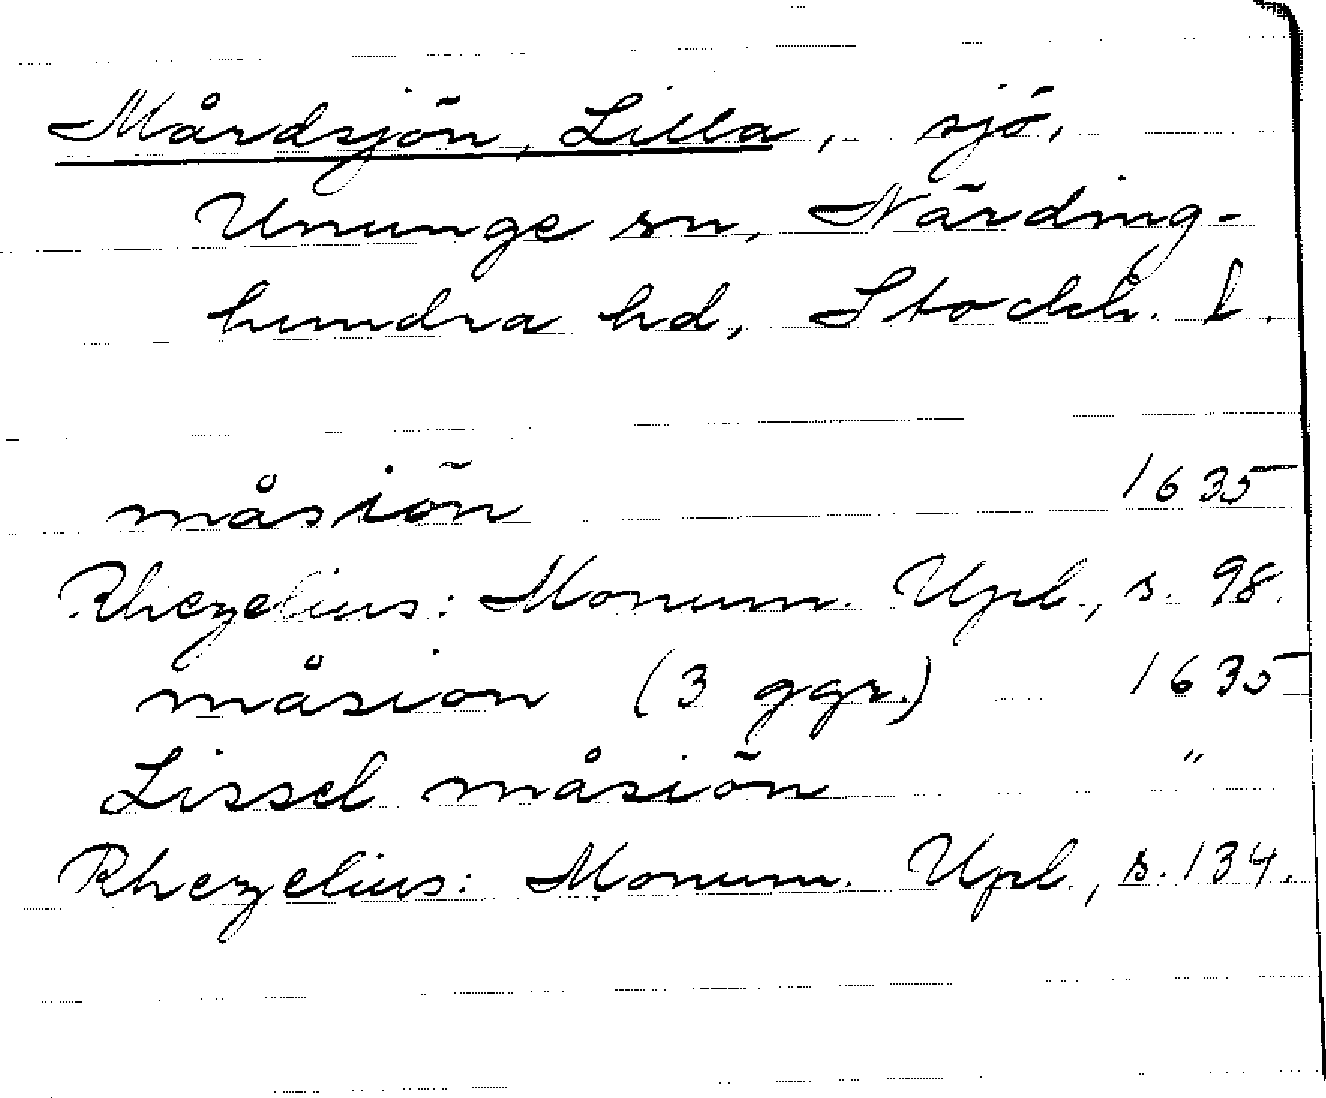 Mårdsjön, Lilla, sjö,
Ununge sn, Närding-
hundra hd, Stockh. l.
måsiön 1635
Rhezelius: Monum. Upl., s. 98.
måsion (3 ggr.) 1635
Lissel måsiön "
Rhezelius: Monum. Upl., s. 134.